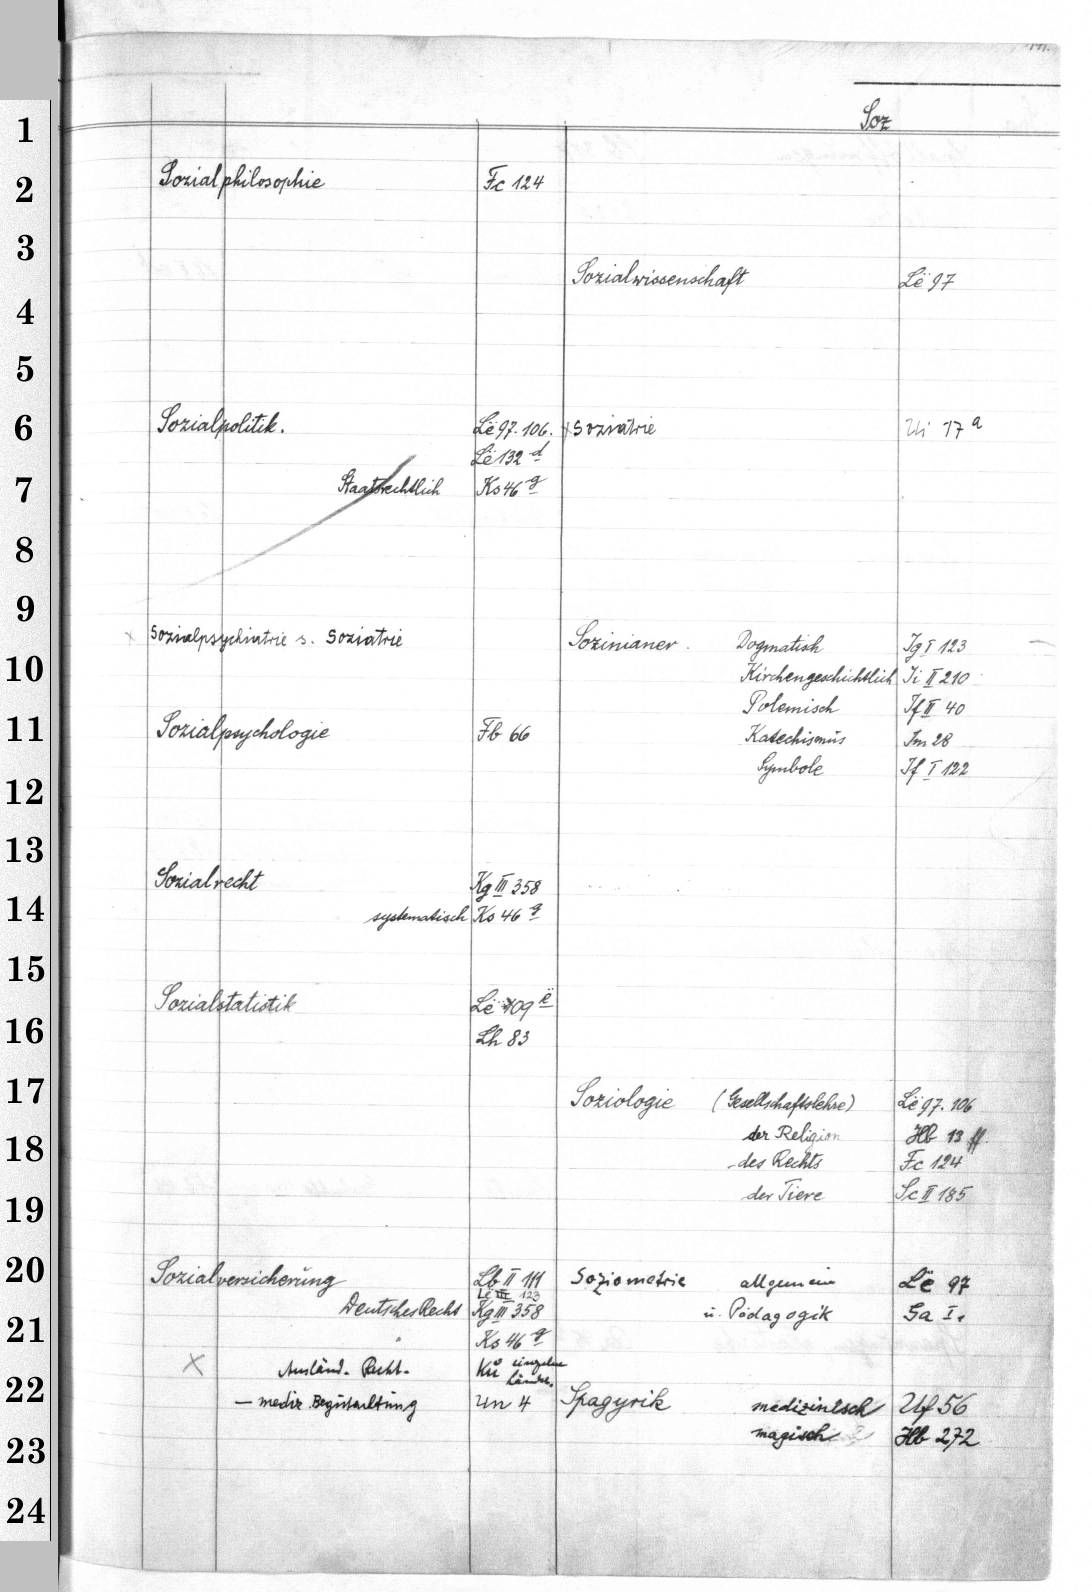 Soz
Sozialphilosophie Fc 124
Sozialpolitik. Lë 97. 106.
Lë 132 d
Staatsrechtlich Ks 46 g
x Sozialpsychiatrie s. Soziatrie
Sozialpsychologie Fb 66
Sozialrecht Kg III 358
systematisch Ks 46 g
Sozialstatistik Lë 109 ë
Lh 83
Sozialversicherung Lb II 111
Lë III 123
Deutsches Recht Kg III 358
" Ks 46 g
x Ausländ. Recht. Kü einzelne Länder.
— mediz. Begutachtung Un 4
Sozialwissenschaft Lë 97
x Soziatrie Ui 17 a
Sozinianer. Dogmatisch Ig I 123
Kirchengeschichtlich Ii II 210
Polemisch If II 40
Katechismus Im 28
Symbole If I 122
Soziologie (Gesellschaftslehre) Lë 97. 106
der Religion Hb 13 ff.
des Rechts Fc 124
der Tiere Sc II 185
Soziometrie allgemein Lë 97
u. Pädagogik Ga I.
Spagyrik medizinisch Uf 56
magisch Hb 272
1
2
3
4
5
6
7
8
9
10
11
12
13
14
15
16
17
18
19
20
21
22
23
24